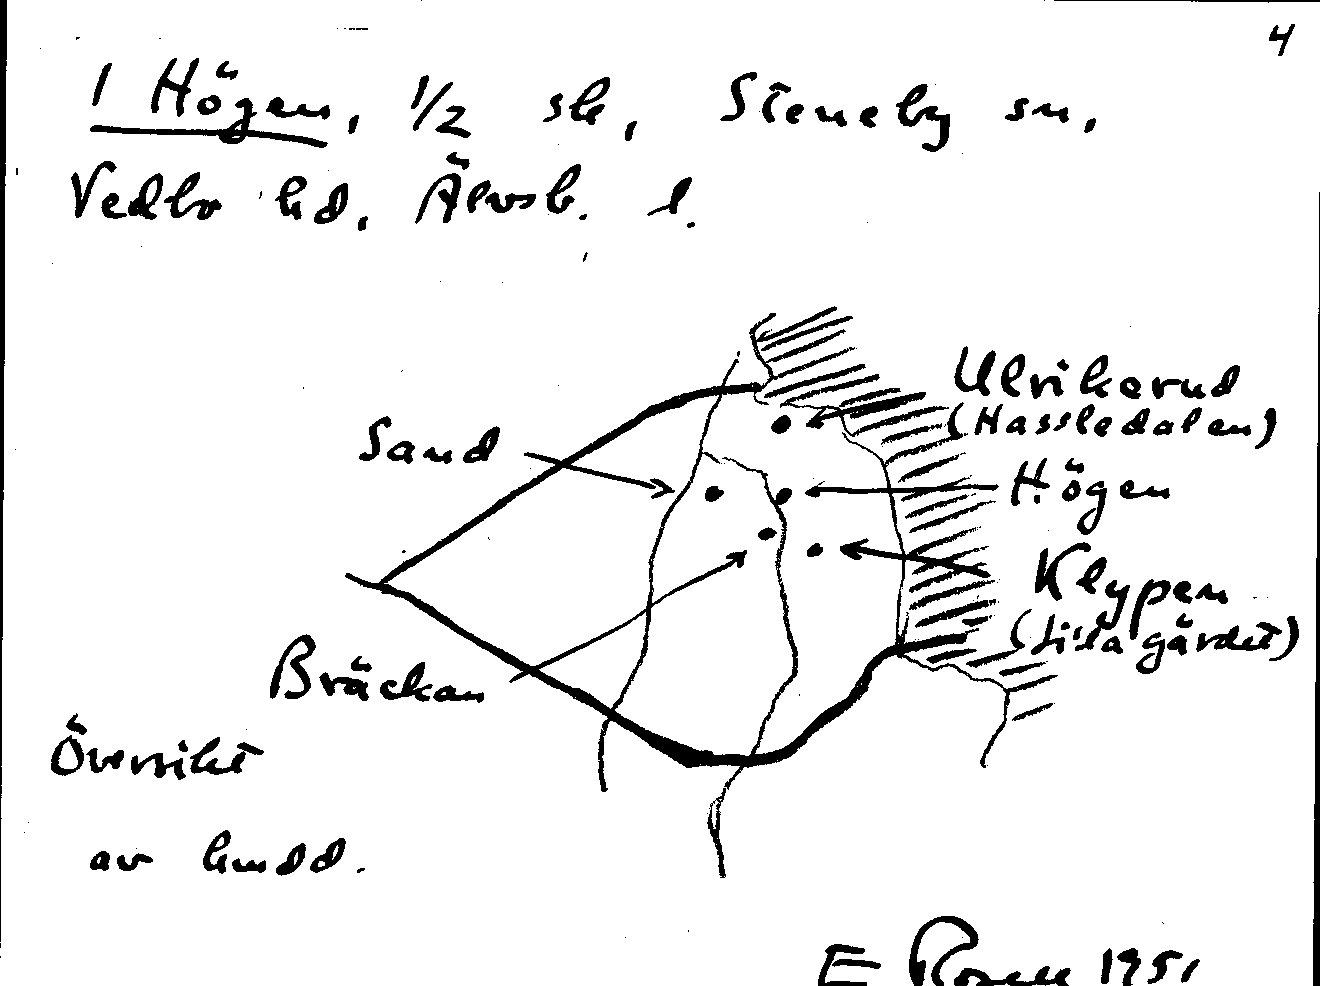 4
1 Högen, 1/2 sk, Steneby sn,
Vedbo hd, Älvsb. l.
Ulrikerud
(Hassledalen)
Sand
Högen
Klypen
(Lisla gärdet)
Bräckan
Översikt
av hmdd.
E Rosell 1951